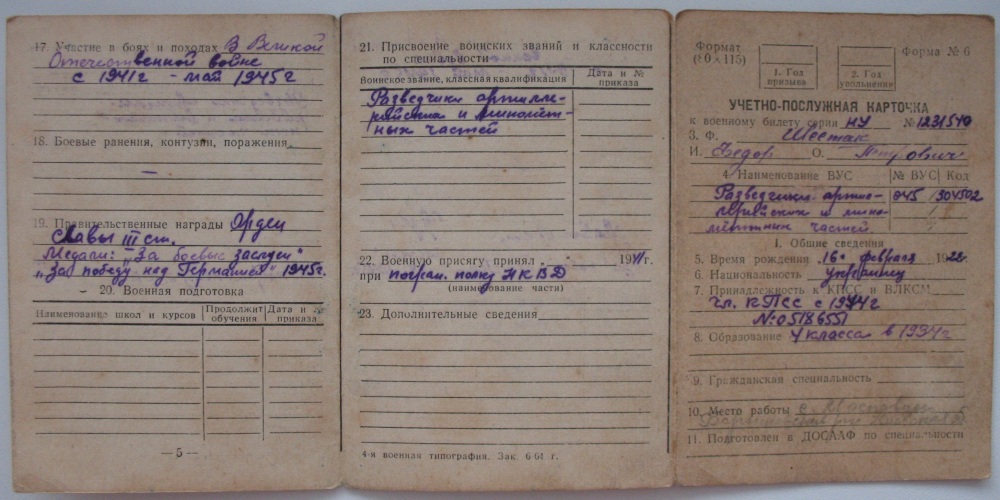 17. Участие в боях и походах В Великой
Отечественной войне
с 1941г - май 1945г
18. Боевые ранения, контузии, поражения
—
19. Правительственные награды Орден
Славы III ст.
Медали: „За боевые заслуги"
„За победу над Германией" 1945г.
20. Военная подготовка
Наименование школ и курсов
Продолжит обучения
Дата и № приказа
— 5 —
21. Присвоение воинских званий и классности
по специальности
Воинское звание, классная квалификация
Дата и № приказа
Разведчики артилле-
рийских и миномет-
ных частей
22. Военную присягу принял 1941г.
при погран. полку НКВД
(наименование части)
23. Дополнительные сведения
4-я военная типография. Зак. 664 г.
Формат
(80×115)
1. Год
призыва
2. Год
увольнения
Форма № 6
УЧЕТНО-ПОСЛУЖНАЯ КАРТОЧКА
к военному билету серия НУ № 1231540
3. Ф. Шестак
И. Федор О. Петрович
4. Наименование ВУС
№ ВУС
Код
Разведчики артил-
045
304502
лерийских и мино-
метных частей
I. Общие сведения
5. Время рождения 16 февраля 1922г.
6. Национальность украинец
7. Принадлежность к КПСС и ВЛКСМ
чл. КПСС с 1944г
N:05186551
8. Образование 4 класса в 1934г
9. Гражданская специальность
10. Место работы с.
11. Подготовлен в ДОСААФ по специальности